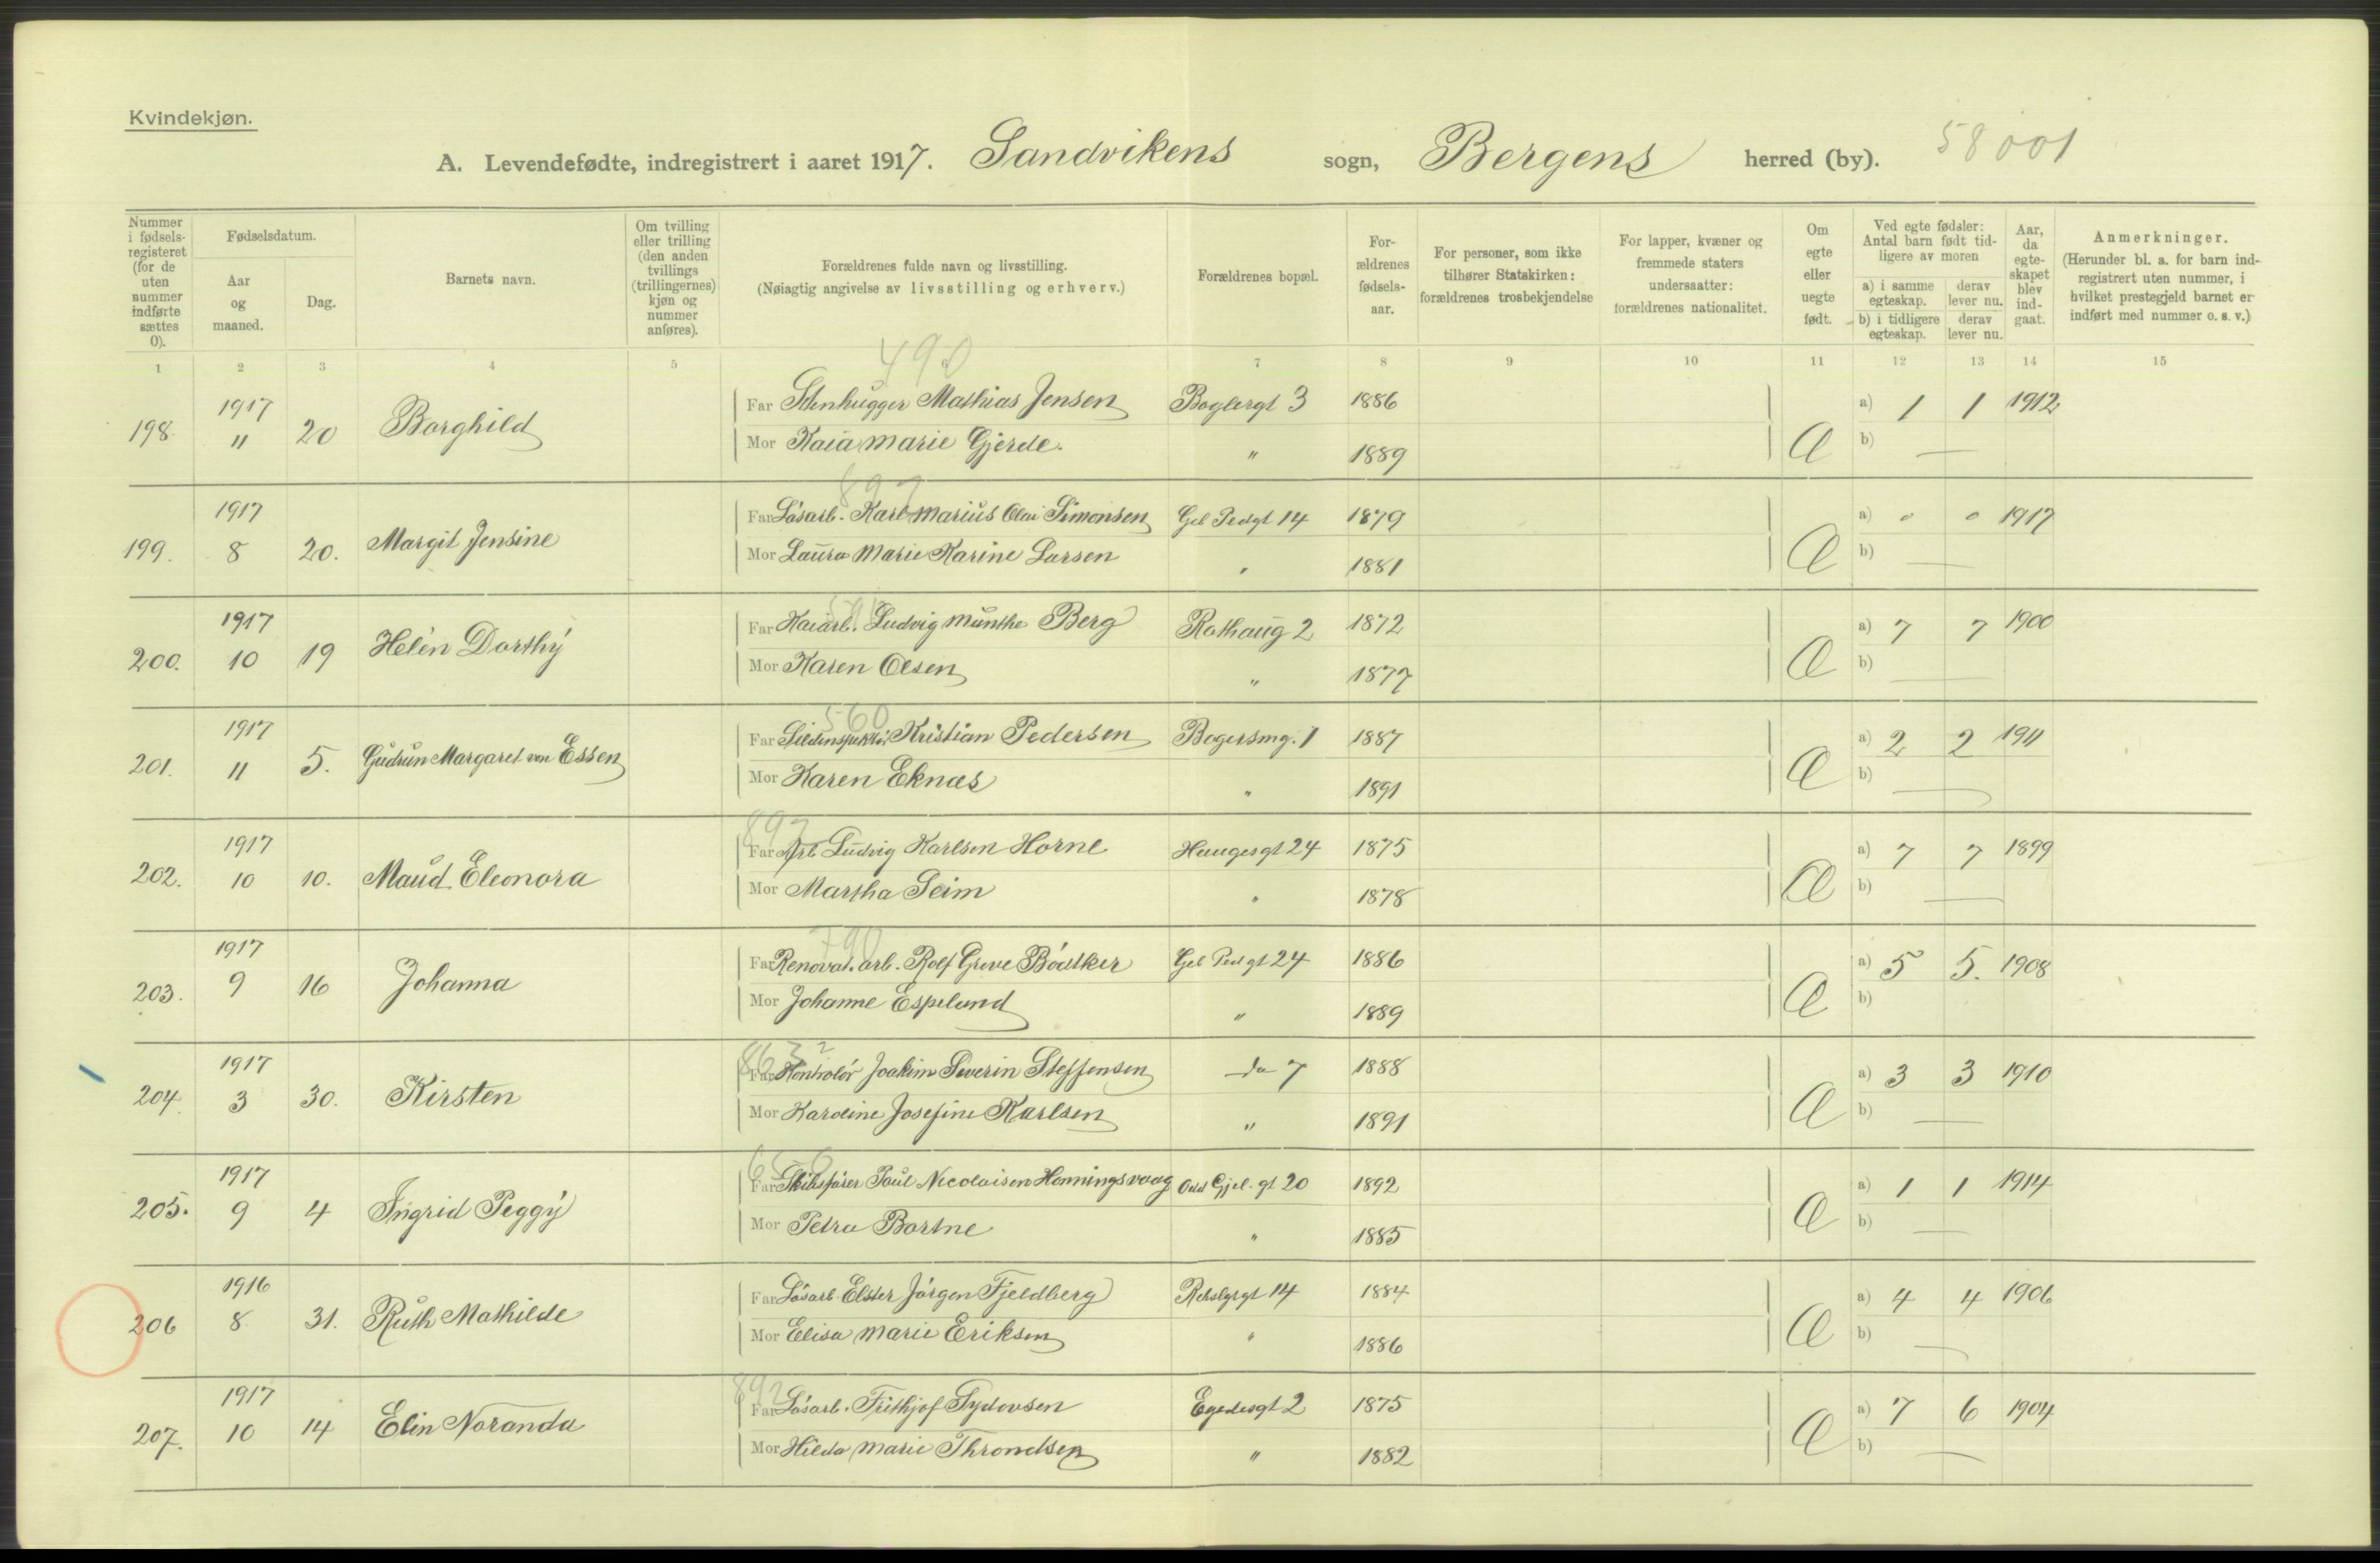 Kvindekjøn.
A. Levendefødte, indregistrert i aaret 1917. Sandvikens sogn, Bergens herred (by). 58001
Nummer i fødselsregisteret (for de uten nummer indførte sættes 0).
Fødselsdatum.
Aar og maaned.
Dag.
Barnets navn.
Om tvilling eller trilling (den anden tvillings (trillingernes) kjøn og nummer anføres).
Forældrenes fulde navn og livsstilling.
(Nøiagtig angivelse av livsstilling og erhverv.)
Forældrenes bopæl.
For-ældrenes fødsels-aar.
For personer, som ikke tilhører Statskirken: forældrenes trosbekjendelse
For lapper, kvæner og fremmede staters undersaatter: forældrenes nationalitet.
Om egte eller uegte født.
Ved egte fødsler: Antal barn født tidligere av moren
a) i samme egteskap. derav lever nu.
b) i tidligere egteskap. derav lever nu.
Aar, da egteskapet blev indgaat.
Anmerkninger.
(Herunder bl. a. for barn indregistrert uten nummer, i hvilket prestegjeld barnet er indført med nummer o. s. v.)
1 2 3 4 5 6 7 8 9 10 11 12 13 14 15
490
198. 1917 11 20 Borghild Far Stenhugger Mathias Jensen Boglergt 3 1886 a) 1 1 1912
Mor Kaia Marie Gjerde. " 1889 b) —
897
199. 1917 8 20. Margit Jensine Far Løsarb. Karl Marius Olai Simonsen Gel Pedgt 14 1879 a) 0 0 1917
Mor Laura Marie Karine Larsen " 1881 b) —
200. 1917 10 19 Helén Dorthy Far Kaiarb. Ludvig Munthe Berg Rothaug 2 1872 a) 7 7 1900
Mor Karen Olsen " 1877 b) —
560
201. 1917 11 5. Gudrun Margaret von Essen Far Kristian Pedersen 1 1887 a) 2 2 1911
Mor Karen Eknæs " 1891 b) —
897
202. 1917 10 10. Maud Eleonora Far Arb Ludvig Karlsen Horne Haugesgt 24 1875 a) 7 7 1899
Mor Martha Seim " 1878 b) —
790
203. 1917 9 16 Johanna Far Renovat. arb. Rolf Greve Bödtker Gel Ped gt 24 1886 a) 5 5. 1908
Mor Johanne Espelund " 1889 b)
863 2
204 1917 3 30. Kirsten Far Kontrolør Joakim Severin Steffensen do 7 1888 a) 3 3 1910
Mor Karoline Josefine Karlsen " 1891 b) —
205. 1917 9 4 Ingrid Peggy Far Skibsfører Paul Nicolaisen Henningsvaag Odd Gjel. gt 20 1892 a) 1 1 1914
Mor Petra Bortne " 1885 b) —
206 1916 8 31. Ruth Mathilde Far Løsarb Elster Jørgen Fjeldberg 14 1884 a) 4 4 1906
Mor Elisa Marie Eriksen " 1886 b) —
892
207. 1917 10 14 Elin Noranda Far Løsarb. Frithjof Sydovsen Egedesgt 2 1875 a) 7 6 1904
Mor Hilda Marie Throndsen " 1882 b) —